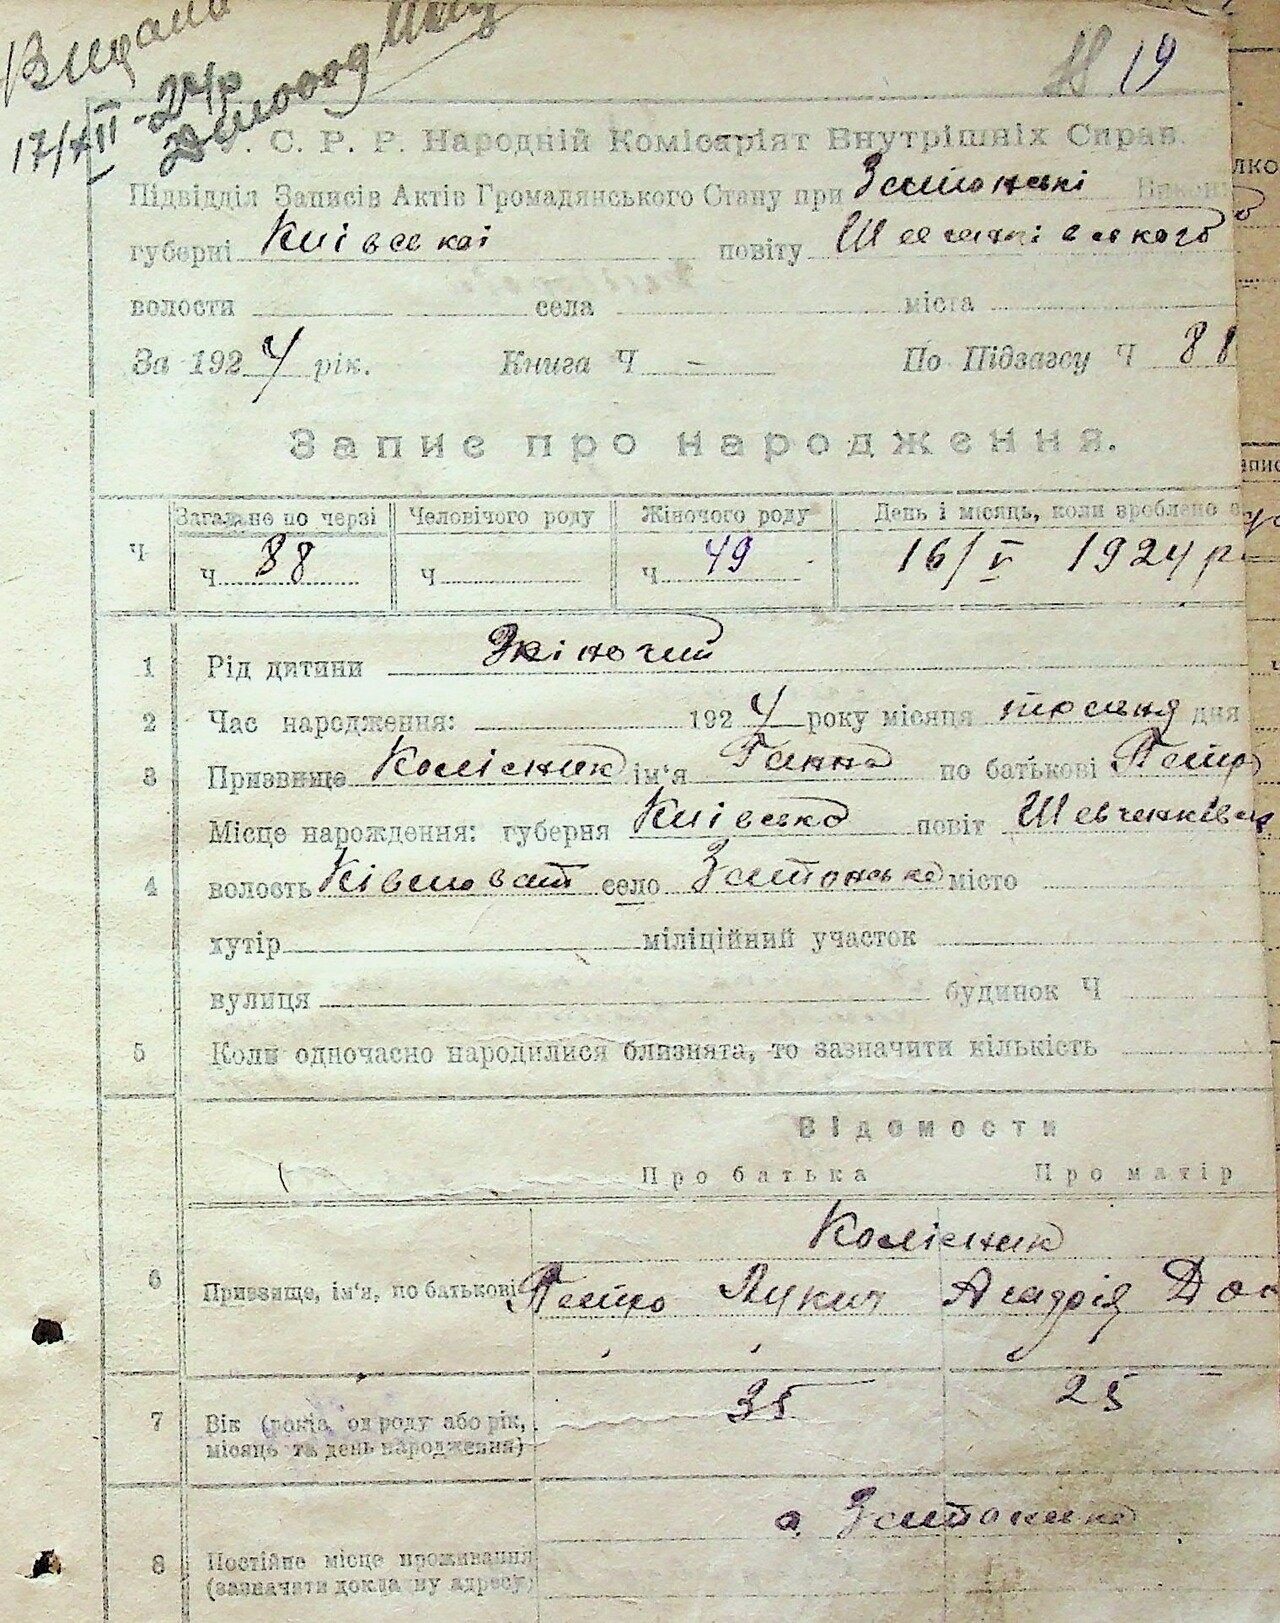 Видана
17/XII-24р
19
. С. Р. Р. Народній Комісаріят Внутрішніх Справ.
Підвідділ Записів Актів Громадянського Стану при
губерні Київської повіту Шевченківського
волости села міста
За 1924 рік. Книга Ч — По Підзагсу Ч 88
Запис про народження.
Загальне по черзі Человічого роду Жіночого роду День і місяць, коли зроблено
Ч Ч 88 Ч Ч 49 16/V 1924 р.
1 Рід дитини Жіночий
2 Час народження: 1924 року місяця дня
3 Призвище Колісник ім'я Ганна по батькові Петро
Місце нарождення: губерня Київсько повіт Шевченківськ
4 волость село місто
хутір міліційний участок
вулиця будинок Ч
5 Коли одночасно народилися близнята, то зазначити кількість
Відомости
Про батька Про матір
Колісник
6 Призвище, ім'я, по батькові Петро Лукич
7 Вік (років од роду або рік, місяць та день народження) 35 25
8 Постійне місце проживання
(зазначити докладну адресу)